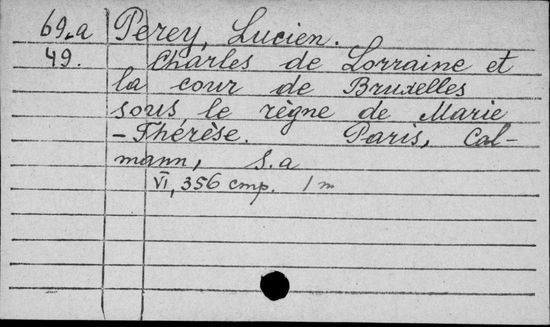 69.a Perey, Lucien.
49. Charles de Lorraine et
la cour de Bruxelles
sous le règne de Marie
-Thérèse. Paris, Cal-
mann, s.a
VI, 356 стр. 1 m